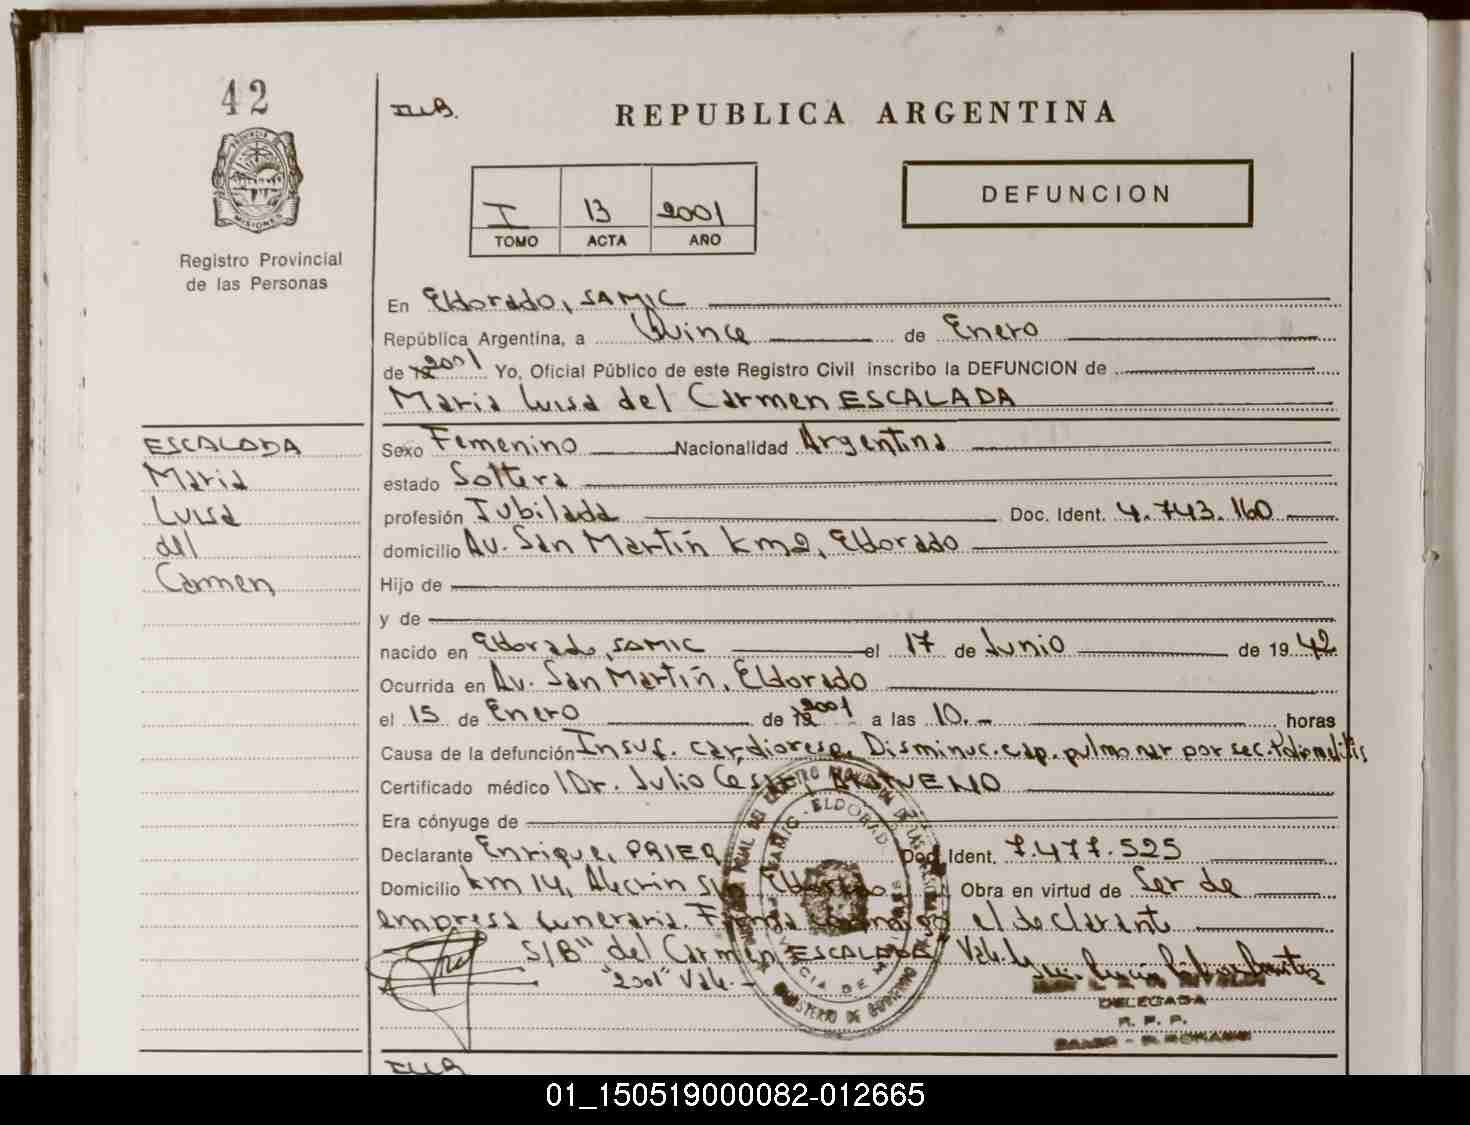 42
REPUBLICA ARGENTINA
PROVINCIA
MISIONES
DEFUNCION
I 13 2001
TOMO ACTA AÑO
Registro Provincial
de las Personas
En Eldorado, SAMIC
República Argentina, a Quince de Enero
de 2001 Yo, Oficial Público de este Registro Civil inscribo la DEFUNCION de
Maria Luisa del Carmen ESCALADA
ESCALADA
Maria
Luisa
del
Carmen
Sexo Femenino Nacionalidad Argentina
estado Soltera
profesión Jubilada Doc. Ident. 4.743.160
domicilio Av. San Martín km2, Eldorado
Hijo de
y de
nacido en Eldorado, SAMIC el 17 de Junio de 1942
Ocurrida en Av. San Martín, Eldorado
el 15 de Enero de 2001 a las 10.- horas
Causa de la defunción Insuf. cardioresp. Disminuc. cap. pulmonar por sec. Poliomelitis
Certificado médico Dr. Julio Cesar
Era cónyuge de
Declarante Enrique PRIER Doc. Ident. 7.477.525
Domicilio km 14, Alecrin S/n Eldorado Obra en virtud de Ser de
empresa funeraria. Firma conmigo el declarante
S/B "del Carmen ESCALADA" Vale.
"2001" Vale.-
DELEGADA
R. P. P.
01_150519000082-012665